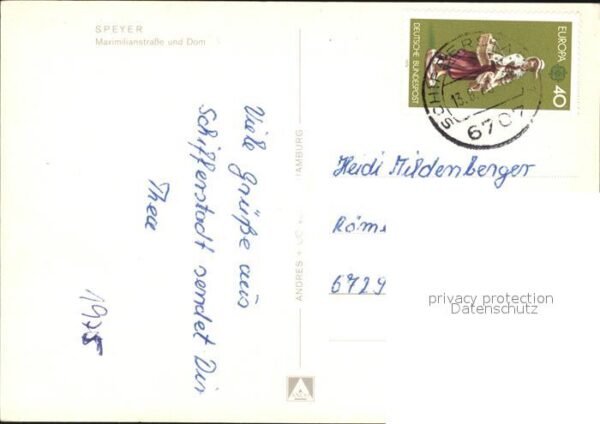 SPEYER
Maximilianstraße und Dom
Viele Grüße aus
Schifferstadt sendet Dir
Thea
1975
ANDRES +
HAMBURG
EUROPA
40
DEUTSCHE BUNDESPOST
SCHIFFER
13.
6707
Heidi Mildenberger
Röme
6729
privacy protection
Datenschutz